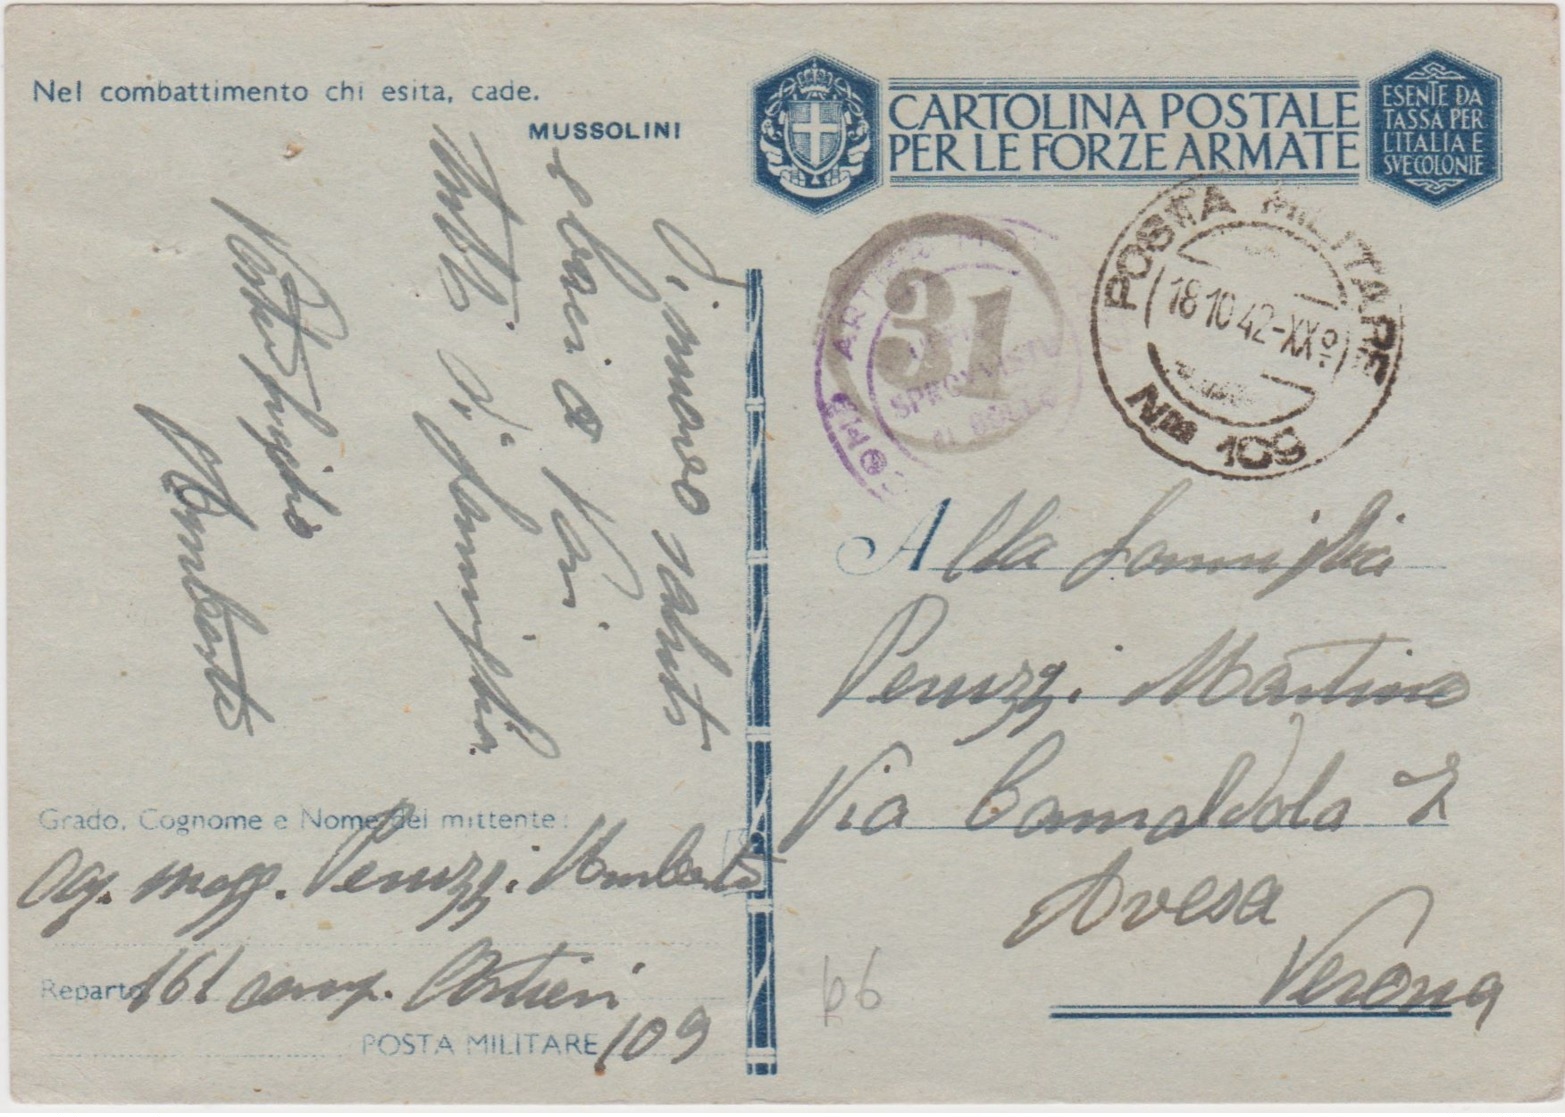 Nel combattimento chi esita, cade.
MUSSOLINI
Di nuovo saluti
e baci a Voi
tutti di famiglia.
Vostro figlio
Umberto
Grado, Cognome e Nome del mittente:
Peruzzi Umberto
Reparto 161 comp. Artieri
POSTA MILITARE 109
CARTOLINA POSTALE
PER LE FORZE ARMATE
ESENTE DA
TASSA PER
L'ITALIA E
SVE COLONIE
31
SPROVVISTO
DI BOLLO
POSTA MILITARE
18.10.42-XXº
Nº 109
Alla famiglia
Peruzzi Martino
Via Camaldola 2
Avesa
Verona
66